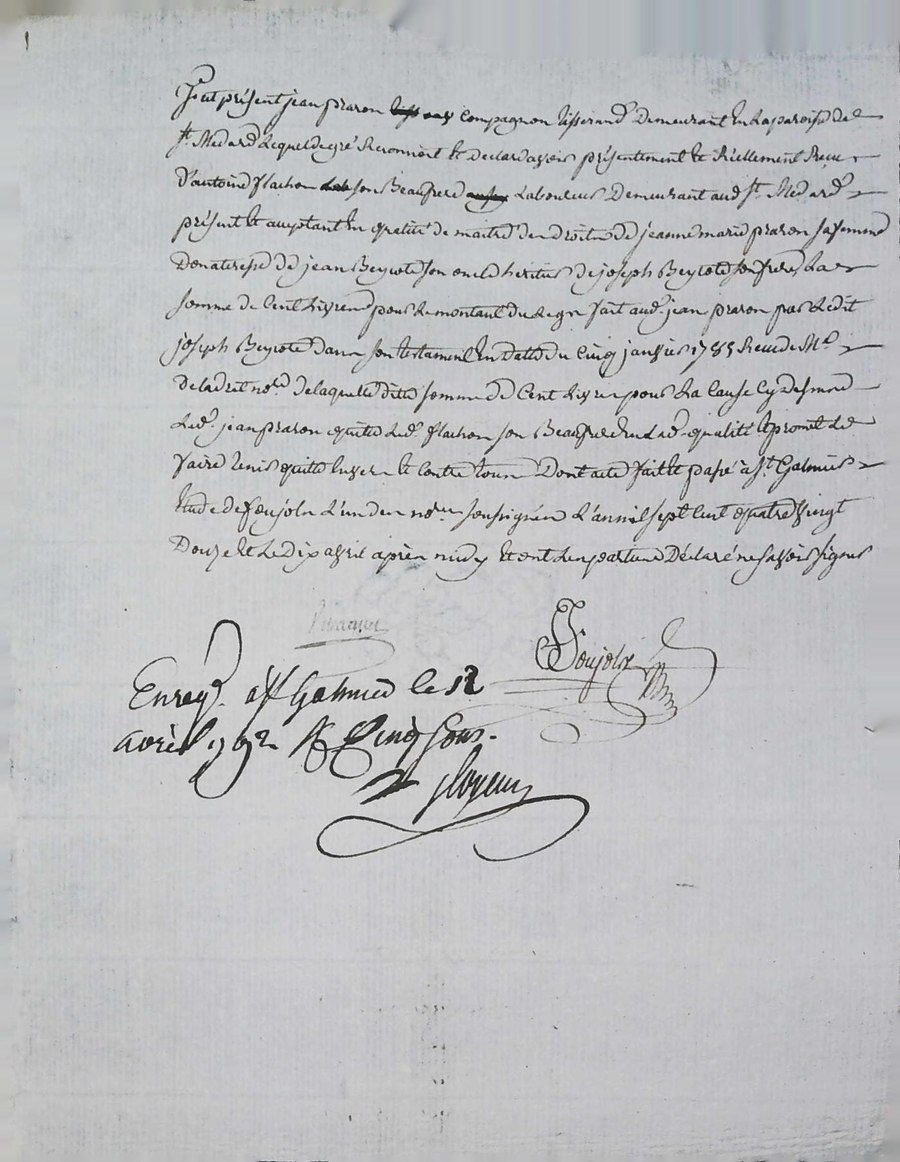 fut présent jean praron compagnon tisserand Demeurant En La paroisse de
St. Medard Lequel de gré Reconnoit Et Declare avoir présentement Et Réellement Reçu
D'antoine flachon son Beaufrere Laboureur Demeurant aud. St. Medard
présent Et acceptant En qualité de maitre des Droits de jeanne marie praron sa femme
Donateresse de jean Beyrote son oncle heritier de joseph Beyrote son frere La
somme de Cent Livres pour Le montant du Legs fait aud. jean praron par Ledit
joseph Beyrote dans son testament En datte du Cinq janvier 1785 Recu de Me.
delad. nore. de laquelle ditte somme de Cent Livres pour La Cause Cy Dessus
Led. jean praron quitte Led. flachon son Beaufrere En lad. qualité Et promet Le
faire tenir quitte Envers Et Contre tous Dont acte fait Et passé à St. Galmier
Etude de foujols L'un des nores. soussignés L'an mil sept Cent quatre vingt
Douze Et Le Dix avril après midy Et ont Les parties Déclaré ne savoir signer
foujols
Enregt. à St Galmier le 12
avril 1792 R Cinq sous.